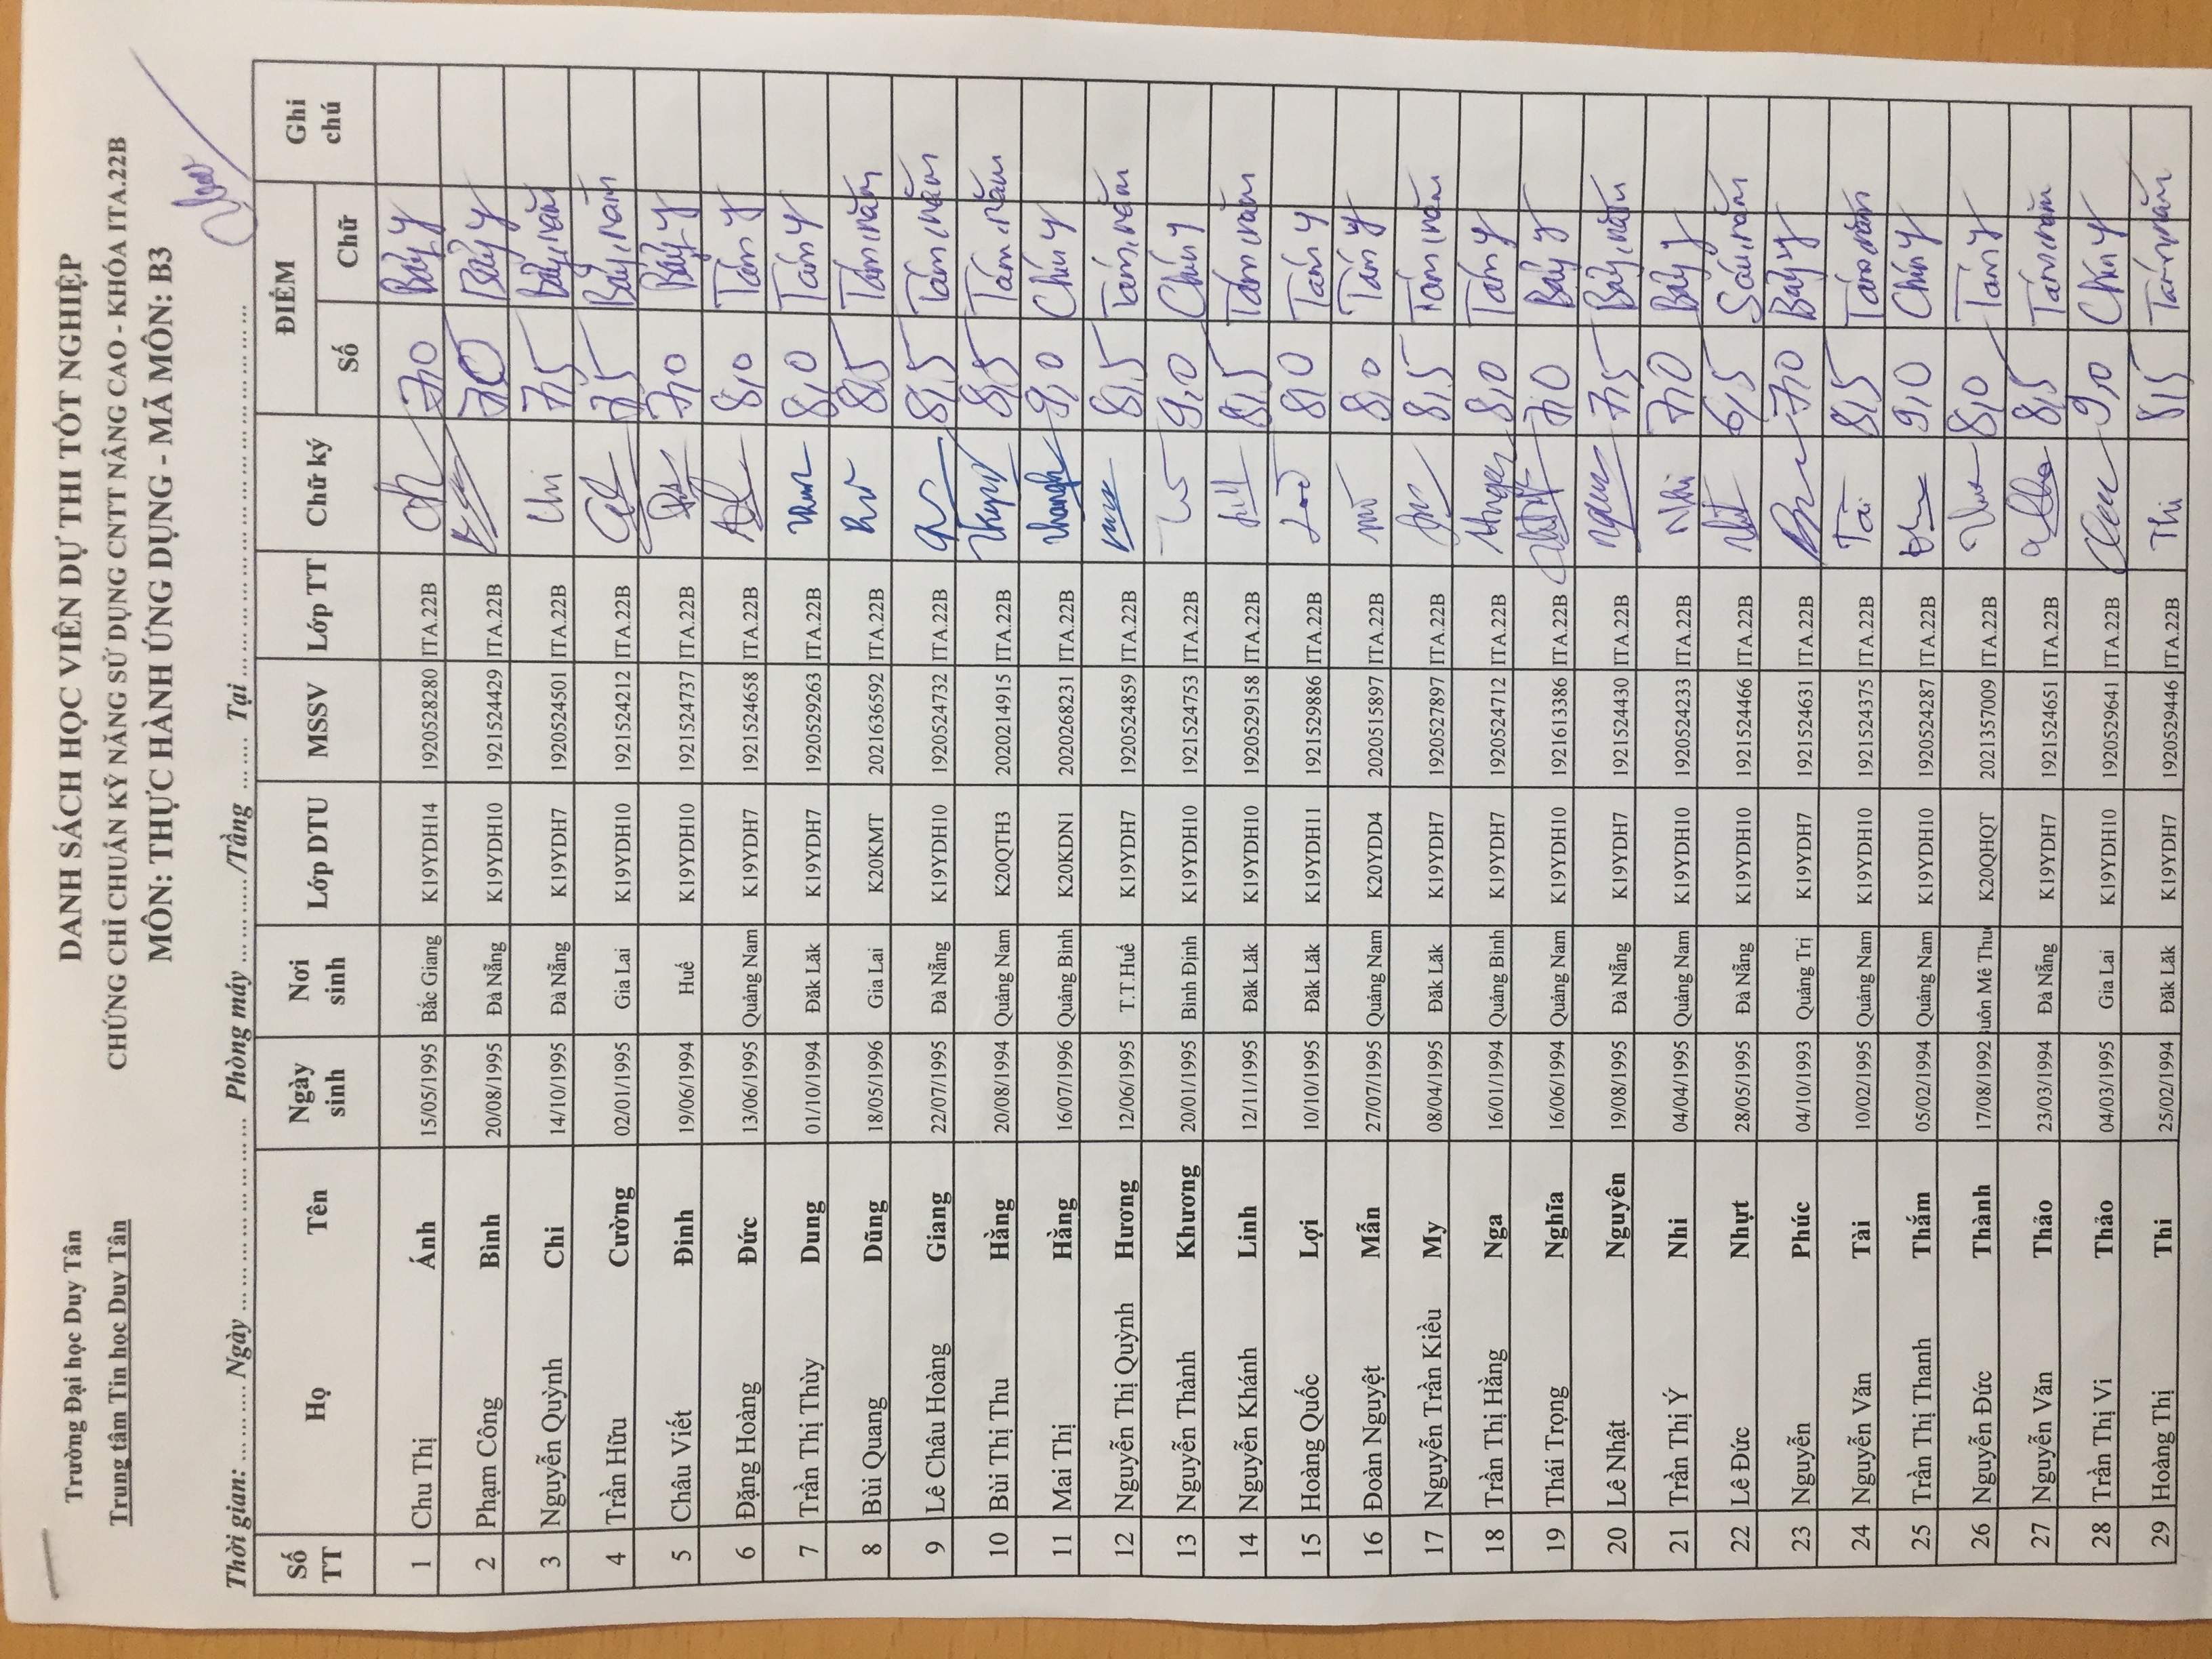 Trường Đại học Duy Tân
Trung tâm Tin học Duy Tân
DANH SÁCH HỌC VIÊN DỰ THI TỐT NGHIỆP
CHỨNG CHỈ CHUẨN KỸ NĂNG SỬ DỤNG CNTT NÂNG CAO - KHÓA ITA.22B
MÔN: THỰC HÀNH ỨNG DỤNG - MÃ MÔN: B3
Thời gian: ... Ngày ... Phòng máy ... /Tầng ... Tại ...
Số TT Họ Tên Ngày sinh Nơi sinh Lớp DTU MSSV Lớp TT Chữ ký ĐIỂM Số Chữ Ghi chú
1 Chu Thị Ánh 15/05/1995 Bắc Giang K19YDH14 1920528280 ITA.22B 7,0 Bảy y
2 Phạm Công Bình 20/08/1995 Đà Nẵng K19YDH10 1921524429 ITA.22B 7,0 Bảy y
3 Nguyễn Quỳnh Chi 14/10/1995 Đà Nẵng K19YDH7 1920524501 ITA.22B Chi 7,5 Bảy, năm
4 Trần Hữu Cường 02/01/1995 Gia Lai K19YDH10 1921524212 ITA.22B 7,5 Bảy, năm
5 Châu Viết Đinh 19/06/1994 Huế K19YDH10 1921524737 ITA.22B 7,0 Bảy y
6 Đặng Hoàng Đức 13/06/1995 Quảng Nam K19YDH7 1921524658 ITA.22B 8,0 Tám y
7 Trần Thị Thùy Dung 01/10/1994 Đăk Lăk K19YDH7 1920529263 ITA.22B 8,0 Tám y
8 Bùi Quang Dũng 18/05/1996 Gia Lai K20KMT 2021636592 ITA.22B 8,5 Tám, năm
9 Lê Châu Hoàng Giang 22/07/1995 Đà Nẵng K19YDH10 1920524732 ITA.22B 8,5 Tám, năm
10 Bùi Thị Thu Hằng 20/08/1994 Quảng Nam K20QTH3 2020214915 ITA.22B 8,5 Tám, năm
11 Mai Thị Hằng 16/07/1996 Quảng Bình K20KDN1 2020268231 ITA.22B 9,0 Chín y
12 Nguyễn Thị Quỳnh Hương 12/06/1995 T.T.Huế K19YDH7 1920524859 ITA.22B 8,5 Tám, năm
13 Nguyễn Thành Khương 20/01/1995 Bình Định K19YDH10 1921524753 ITA.22B 9,0 Chín y
14 Nguyễn Khánh Linh 12/11/1995 Đăk Lăk K19YDH10 1920529158 ITA.22B 8,5 Tám, năm
15 Hoàng Quốc Lợi 10/10/1995 Đăk Lăk K19YDH11 1921529886 ITA.22B 8,0 Tám y
16 Đoàn Nguyệt Mẫn 27/07/1995 Quảng Nam K20YDD4 2020515897 ITA.22B 8,0 Tám y
17 Nguyễn Trần Kiều My 08/04/1995 Đăk Lăk K19YDH7 1920527897 ITA.22B 8,5 Tám, năm
18 Trần Thị Hằng Nga 16/01/1994 Quảng Bình K19YDH7 1920524712 ITA.22B 8,0 Tám y
19 Thái Trọng Nghĩa 16/06/1994 Quảng Nam K19YDH10 1921613386 ITA.22B 7,0 Bảy y
20 Lê Nhật Nguyên 19/08/1995 Đà Nẵng K19YDH7 1921524430 ITA.22B 7,5 Bảy, năm
21 Trần Thị Ý Nhi 04/04/1995 Quảng Nam K19YDH10 1920524233 ITA.22B Nhi 7,0 Bảy y
22 Lê Đức Nhựt 28/05/1995 Đà Nẵng K19YDH10 1921524466 ITA.22B 6,5 Sáu, năm
23 Nguyễn Phúc 04/10/1993 Quảng Trị K19YDH7 1921524631 ITA.22B 7,0 Bảy y
24 Nguyễn Văn Tài 10/02/1995 Quảng Nam K19YDH10 1921524375 ITA.22B Tài 8,5 Tám, năm
25 Trần Thị Thanh Thắm 05/02/1994 Quảng Nam K19YDH10 1920524287 ITA.22B 9,0 Chín y
26 Nguyễn Đức Thành 17/08/1992 uôn Mê Thu K20QHQT 2021357009 ITA.22B 8,0 Tám y
27 Nguyễn Văn Thảo 23/03/1994 Đà Nẵng K19YDH7 1921524651 ITA.22B 8,5 Tám, năm
28 Trần Thị Vi Thảo 04/03/1995 Gia Lai K19YDH10 1920529641 ITA.22B 9,0 Chín y
29 Hoàng Thị Thi 25/02/1994 Đăk Lăk K19YDH7 1920529446 ITA.22B Thi 8,5 Tám, năm